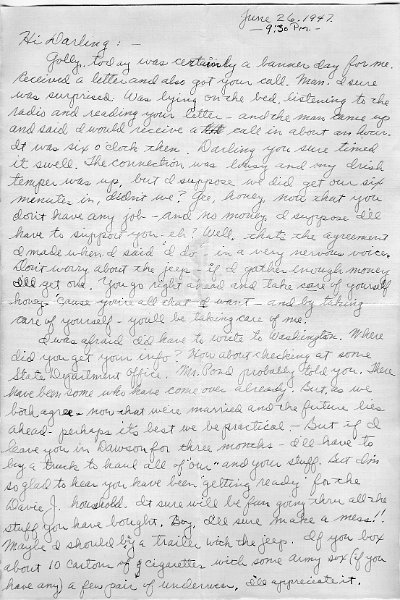 June 26, 1947.
- 9:30 Pm. -
Hi Darling: -
Golly, today was certainly a banner day for me.
Received a letter and also got your call. Man. I sure
was surprised. Was lying on the bed, listening to the
radio and reading your letter - and the man came up
and said I would receive a call in about an hour.
It was six o'clock then. Darling you sure timed
it swell. The connection was lousy and my Irish
temper was up, but I suppose we did get our six
minutes in, didn't we? Gee, honey, now that you
don't have any job - and no money, I suppose I'll
have to support you - eh? Well, that's the agreement
I made when I said "I do" - in a very nervous voice.
Don't worry about the jeep - if I gather enough money
I'll get one. You go right ahead and take care of yourself
honey - 'Cause you're all that I want - and by taking
care of yourself - you'll be taking care of me!
I was afraid I'd have to write to Washington. Where
did you get your info? How about checking at some
State Department office. Mr. Pond probably told you. There
have been some who have come over already. But, as we
both agree - now that we're married and the future lies
ahead - perhaps it's best we be practical. - But if I
leave you in Dawson for three months - I'll have to
buy a trunk to haul all of "our" and your stuff. But I'm
so glad to hear you have been "getting ready" for the
Davie J. household. It sure will be fun going thru all the
stuff you have bought. Boy, I'll sure make a mess!!
Maybe I should buy a trailer with the jeep. If you box
about 10 cartons of cigarettes with some army sox (if you
have any) a few pair of underwear, I'll appreciate it.